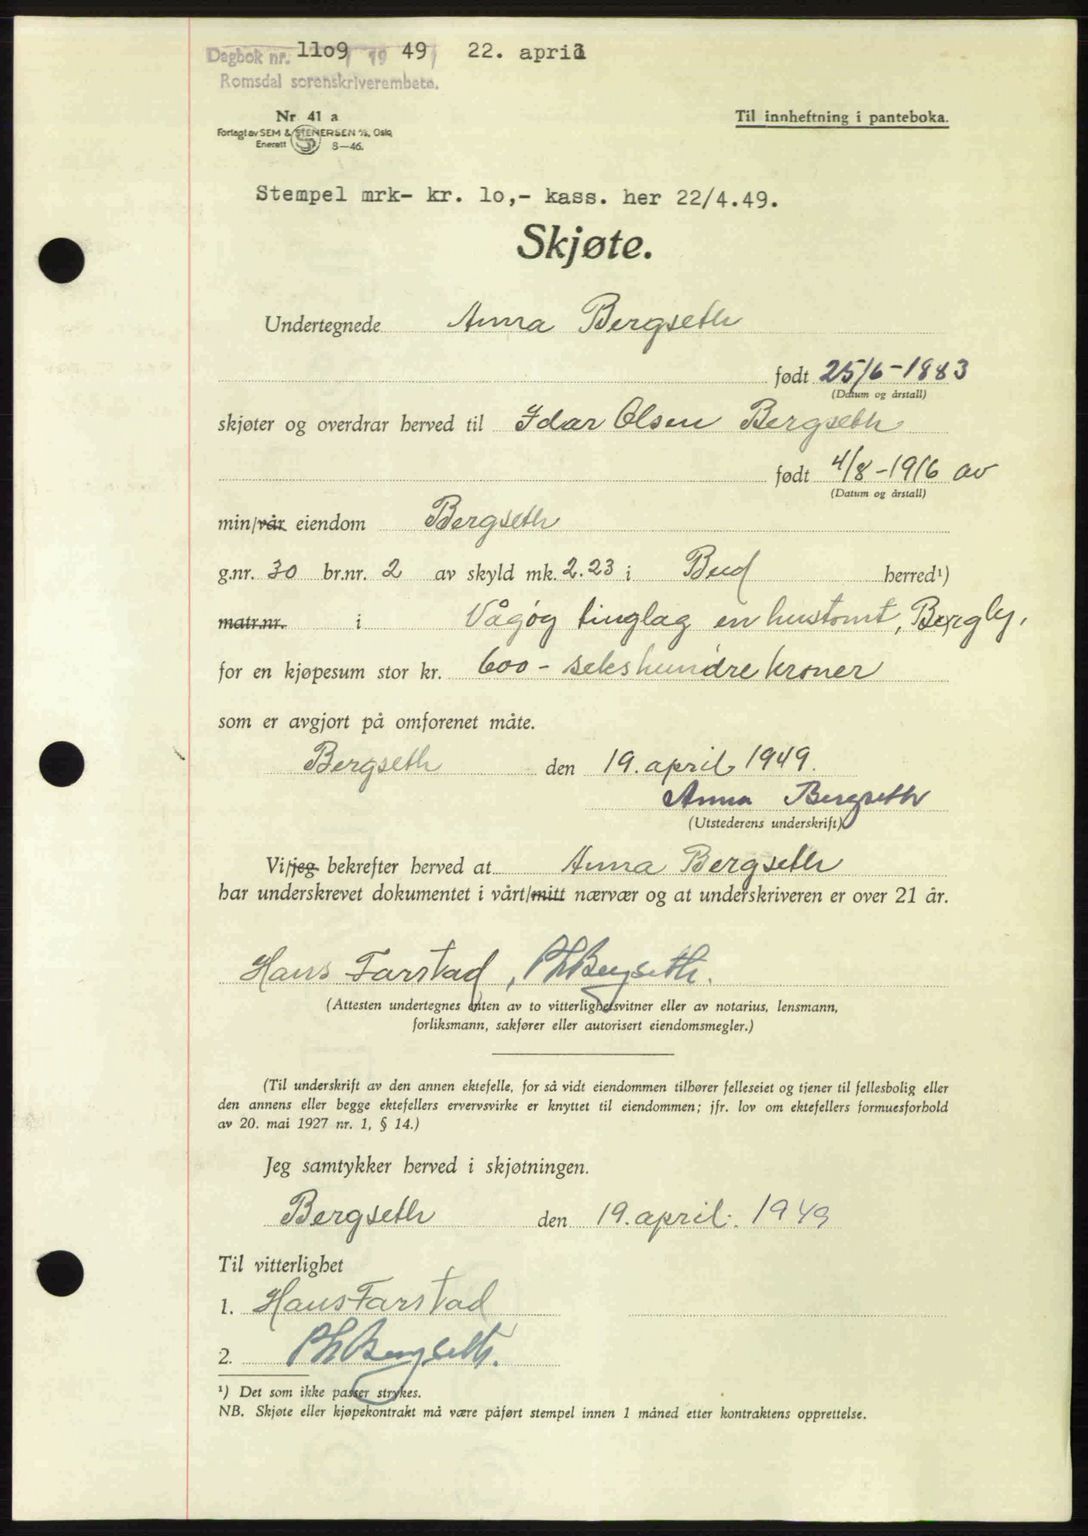 Dagbok nr. 1109 1949 22. april
Romsdal sorenskriverembete.
Nr 41 a
Til innheftning i panteboka.
Forlagt av SEM & STENERSEN A/S, Oslo
Enerett S 8-46.
Stempel mrk- kr. lo,- kass. her 22/4.49.
Skjøte.
Undertegnede Anna Bergseth
født 25/6-1883
(Datum og årstall)
skjøter og overdrar herved til Idar Olsen Bergseth
født 4/8-1916 av
(Datum og årstall)
min/vår eiendom Bergseth
g.nr. 30 br.nr. 2 av skyld mk. 2.23 i Bud herred¹)
matr.nr. i Vågøy tinglag en hustomt, Bergly,
for en kjøpesum stor kr. 600 - sekshundre kroner
som er avgjort på omforenet måte.
Bergseth den 19. april 1949.
Anna Bergseth
(Utstederens underskrift)
Vi/jeg bekrefter herved at Anna Bergseth
har underskrevet dokumentet i vårt/mitt nærvær og at underskriveren er over 21 år.
Hans Farstad, Bergseth.
(Attesten undertegnes enten av to vitterlighetsvitner eller av notarius, lensmann,
forliksmann, sakfører eller autorisert eiendomsmegler.)
(Til underskrift av den annen ektefelle, for så vidt eiendommen tilhører felleseiet og tjener til fellesbolig eller
den annens eller begge ektefellers ervervsvirke er knyttet til eiendommen; jfr. lov om ektefellers formuesforhold
av 20. mai 1927 nr. 1, § 14.)
Jeg samtykker herved i skjøtningen.
Bergseth den 19. april. 1949
Til vitterlighet
1. Hans Farstad
2. Bergseth.
¹) Det som ikke passer strykes.
NB. Skjøte eller kjøpekontrakt må være påført stempel innen 1 måned etter kontraktens opprettelse.